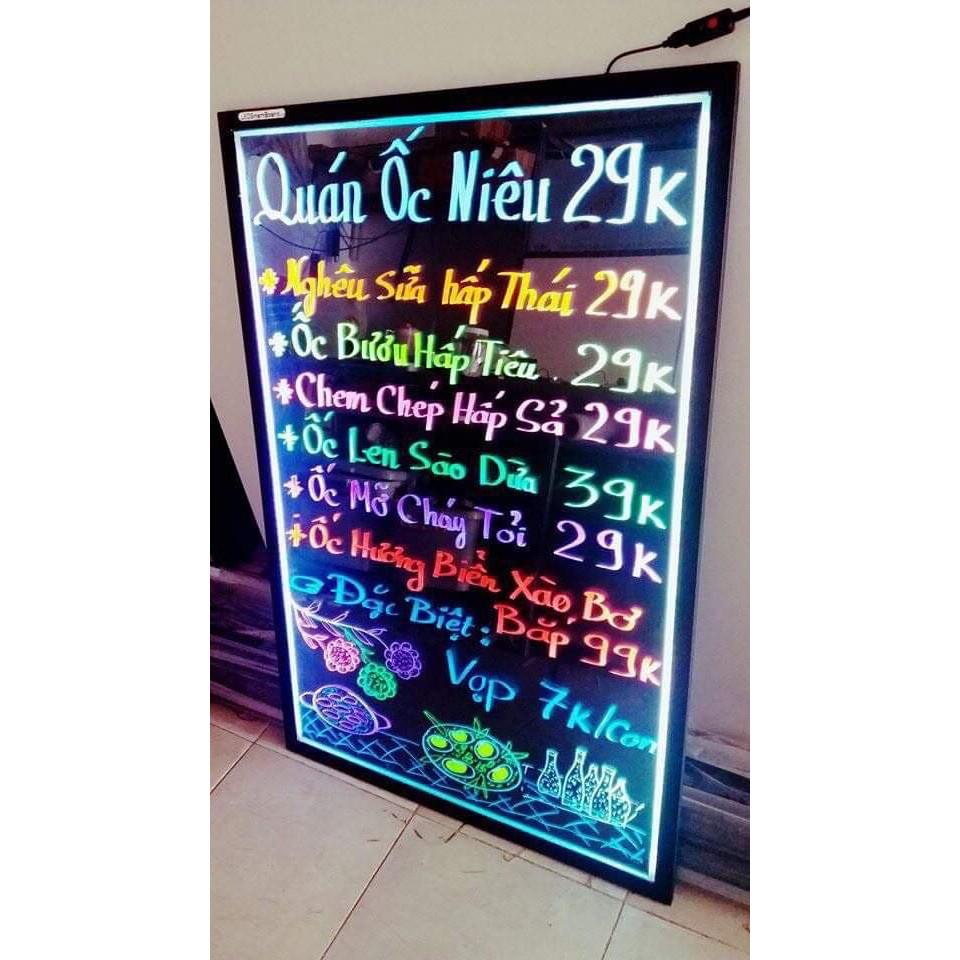 LEDSmartBoard
Quán Ốc Niêu 29K
* Nghêu Sữa hấp Thái 29K
* Ốc Bươu Hấp Tiêu. 29K
* Chem Chép Hấp Sả 29K
* Ốc Len Sào Dừa 39K
* Ốc Mỡ Cháy Tỏi 29K
* Ốc Hương Biển Xào Bơ
Bắp 99K
Đặc Biệt:
Vọp 7K/Con